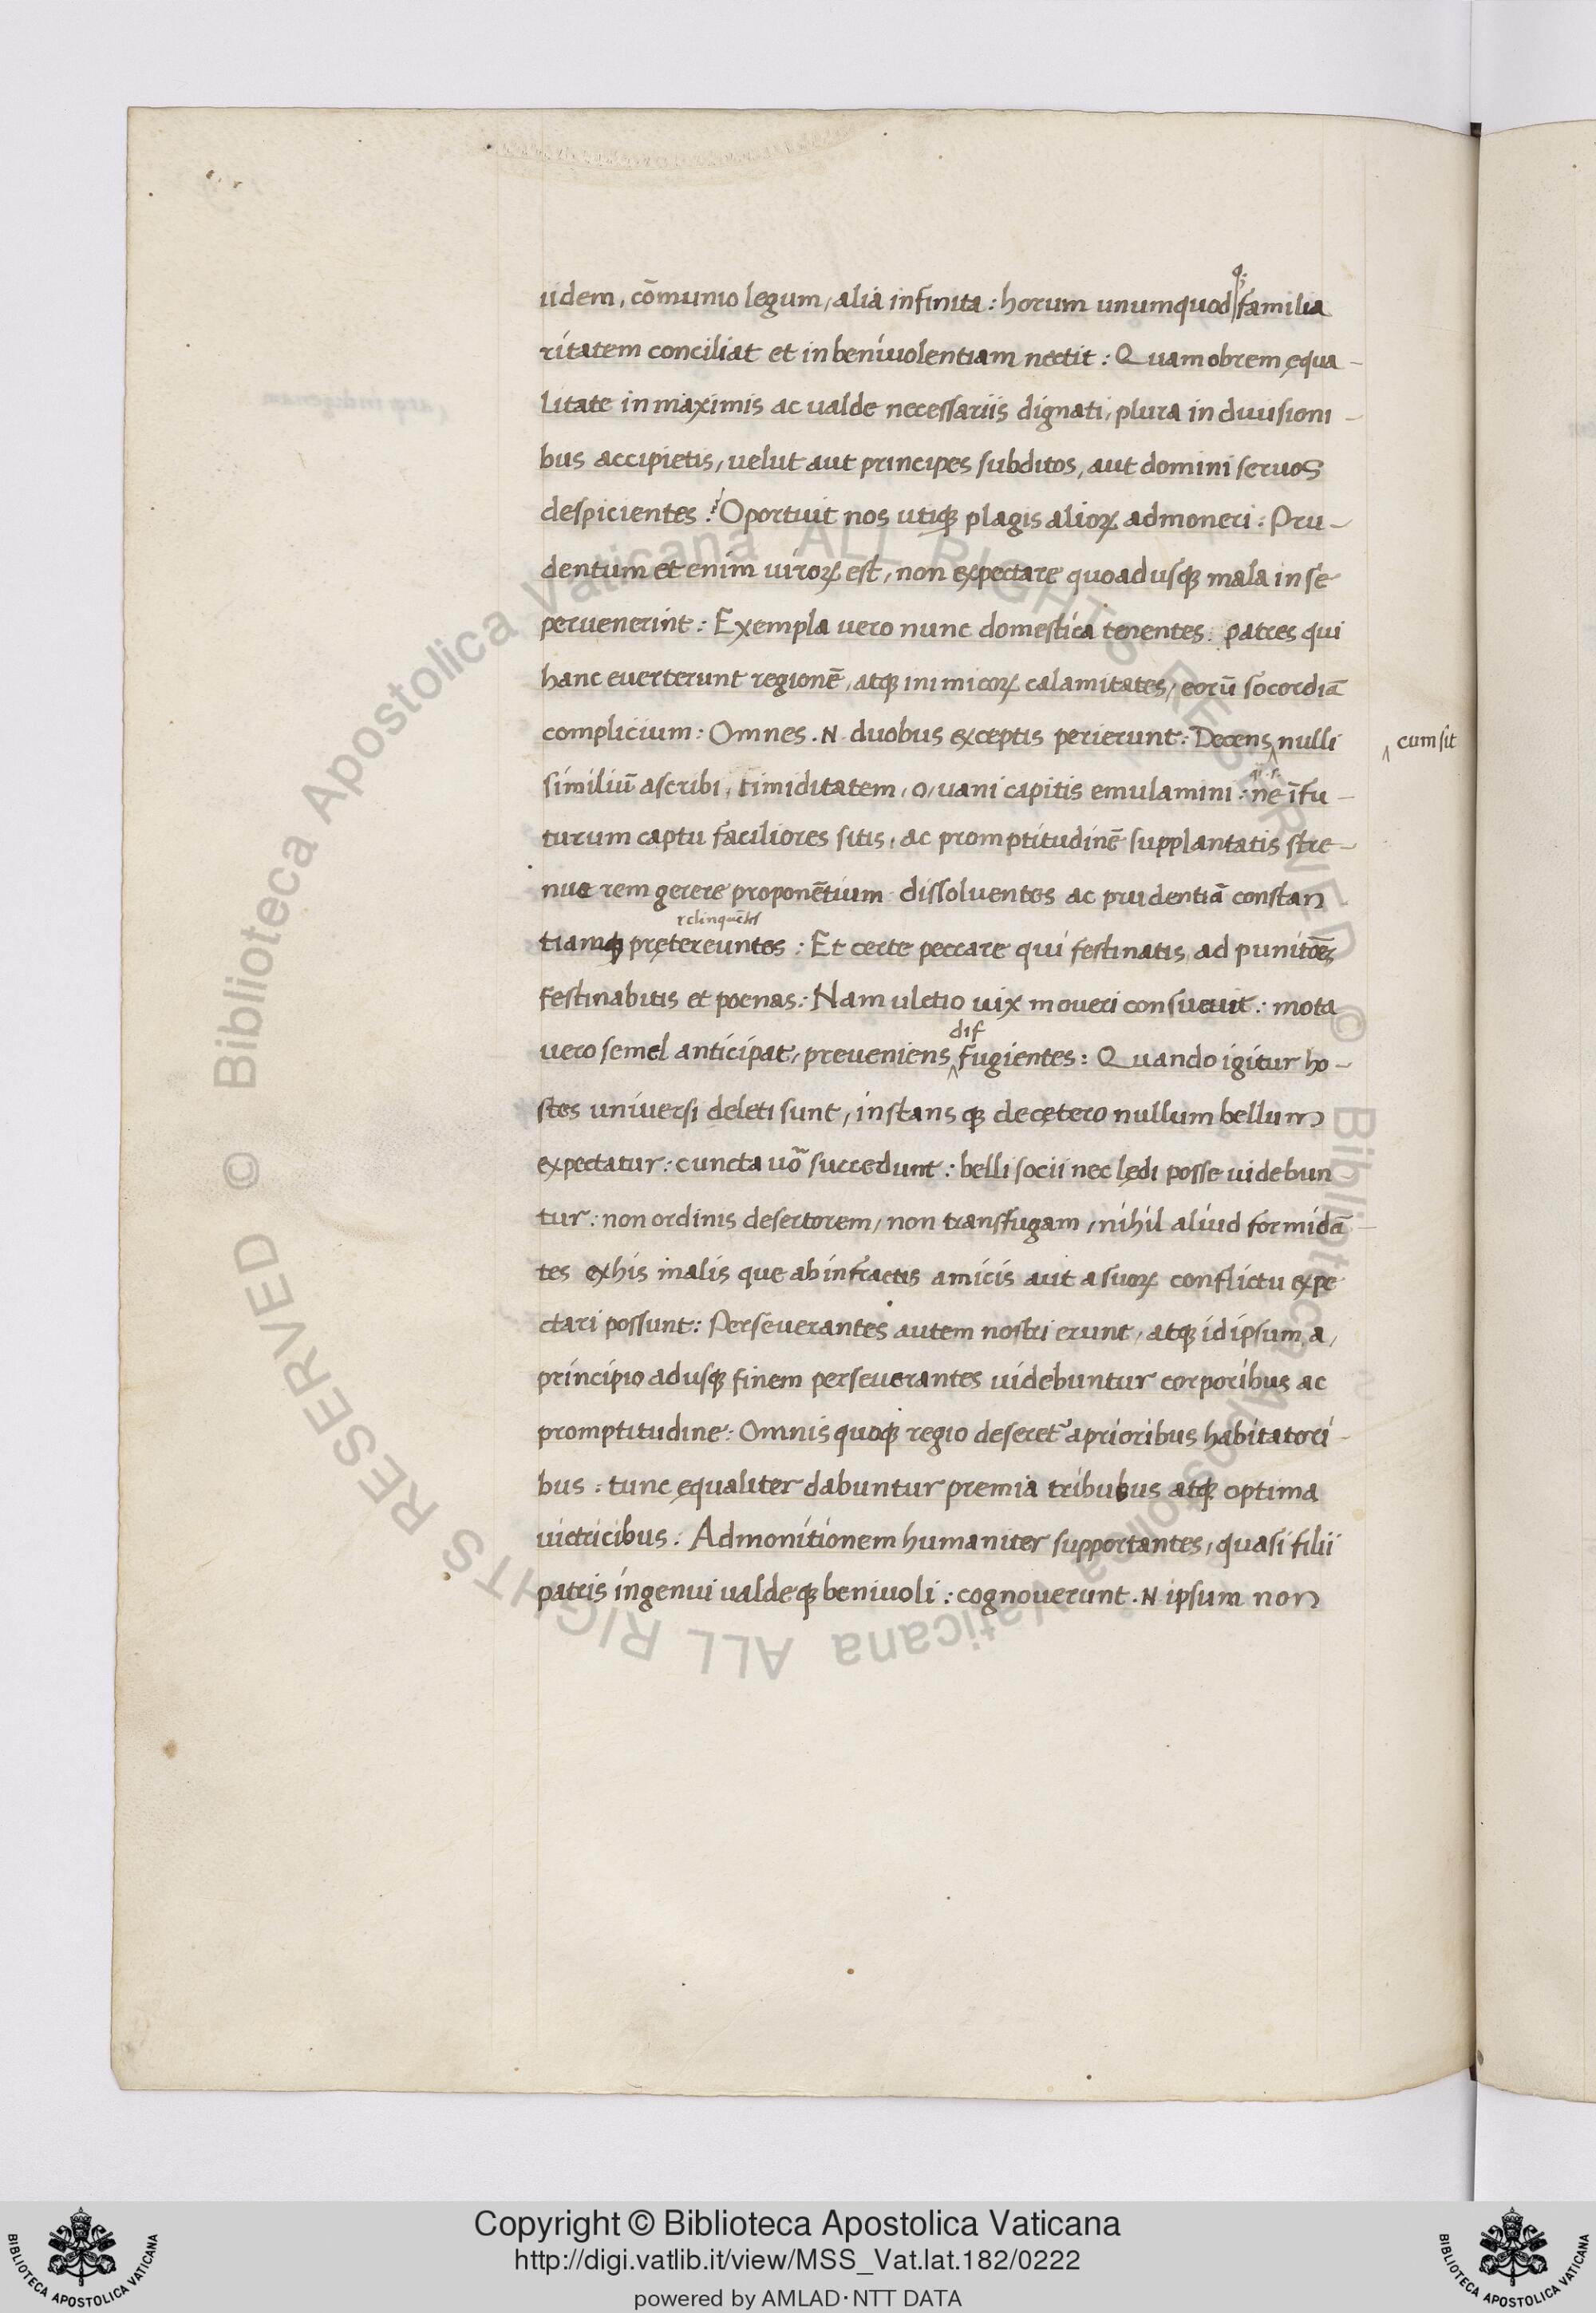 iidem, cōmunio legum, alia infinita: horum unumquodq; familia
ritatem conciliat et in benivolentiam nectit: Quamobrem ęqua-
litate in maximis ac valde necessariis dignati, plura in divisioni-
bus accipietis, velut aut principes subditos, aut domini servos
despicientes: Oportuit nos utiqꝫ plagis alioꝝ admoneri: Pru-
dentum et enim viroꝝ est, non expectare quoadusqꝫ mala in se
pervenerint: Exempla vero nunc domestica tenentes: patres qui
hanc everterunt regionē, atqꝫ inimicoꝝ calamitates, eorū socordiā
complicium: Omnes .N. duobus exceptis perierunt: Decens ^ nulli
^ cum sit
similiū ascribi, timiditatem, o, vani capitis emulamini: ne ī fu-
turum captu faciliores sitis, ac promptitudinē supplantatis stre-
nue rem gerere proponētium dissolventes ac prudentiā constan
relinquētes
tiamqꝫ prętereuntes: Et certe peccare qui festinatis, ad punitōes
festinabitis et poenas: Nam ultio vix moveri consuevit: mota
dif
vero semel anticipat, preveniens ^ fugientes: Quando igitur ho-
stes universi deleti sunt, instansqꝫ de cętero nullum bellum
expectatur: cuncta vō succedunt: belli socii nec lędi posse videbun
tur: non ordinis desertorem, non transfugam, nihil aliud formidā-
tes ex his malis que ab infractis amicis aut a suoꝝ conflictu expe
ctari possunt: Perseverantes autem nostri erunt, atqꝫ id ipsum, a,
principio adusqꝫ finem perseverantes videbuntur corporibus ac
promptitudine: Omnis quoqꝫ regio deseret̄ a prioribus habitatori-
bus: tunc ęqualiter dabuntur premia tribubus atqꝫ optima
victricibus: Admonitionem humaniter supportantes, quasi filii
patris ingenui valdeqꝫ benivoli: cognoverunt .N. ipsum non
© Biblioteca Apostolica Vaticana ALL RIGHTS RESERVED
© Biblioteca Apostolica Vaticana ALL RIGHTS RESERVED
Copyright © Biblioteca Apostolica Vaticana
http://digi.vatlib.it/view/MSS_Vat.lat.182/0222
powered by AMLAD·NTT DATA
BIBLIOTECA APOSTOLICA VATICANA
BIBLIOTECA APOSTOLICA VATICANA